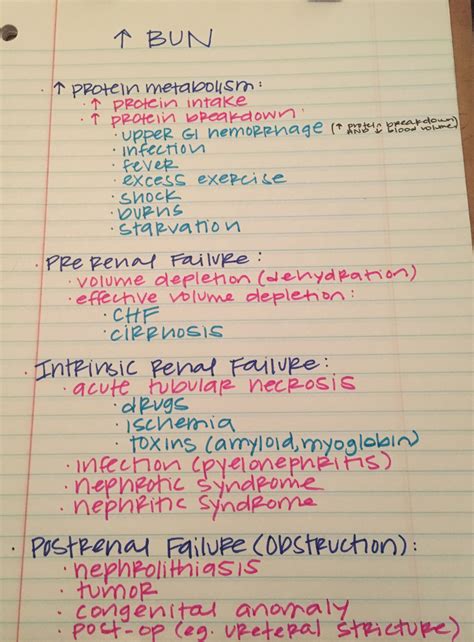 ↑ BUN
· ↑ protein metabolism:
· ↑ protein intake
· ↑ protein breakdown:
· upper GI hemorrhage (↑ protein breakdown AND ↓ blood volume)
· infection
· fever
· excess exercise
· shock
· burns
· starvation
· Prerenal Failure:
· volume depletion (dehydration)
· effective volume depletion:
· CHF
· cirrhosis
· Intrinsic Renal Failure:
· acute tubular necrosis
· drugs
· ischemia
· toxins (amyloid, myoglobin)
· infection (pyelonephritis)
· nephrotic syndrome
· nephritic syndrome
· Postrenal Failure (obstruction):
· nephrolithiasis
· tumor
· congenital anomaly
· post-op (eg. ureteral stricture)